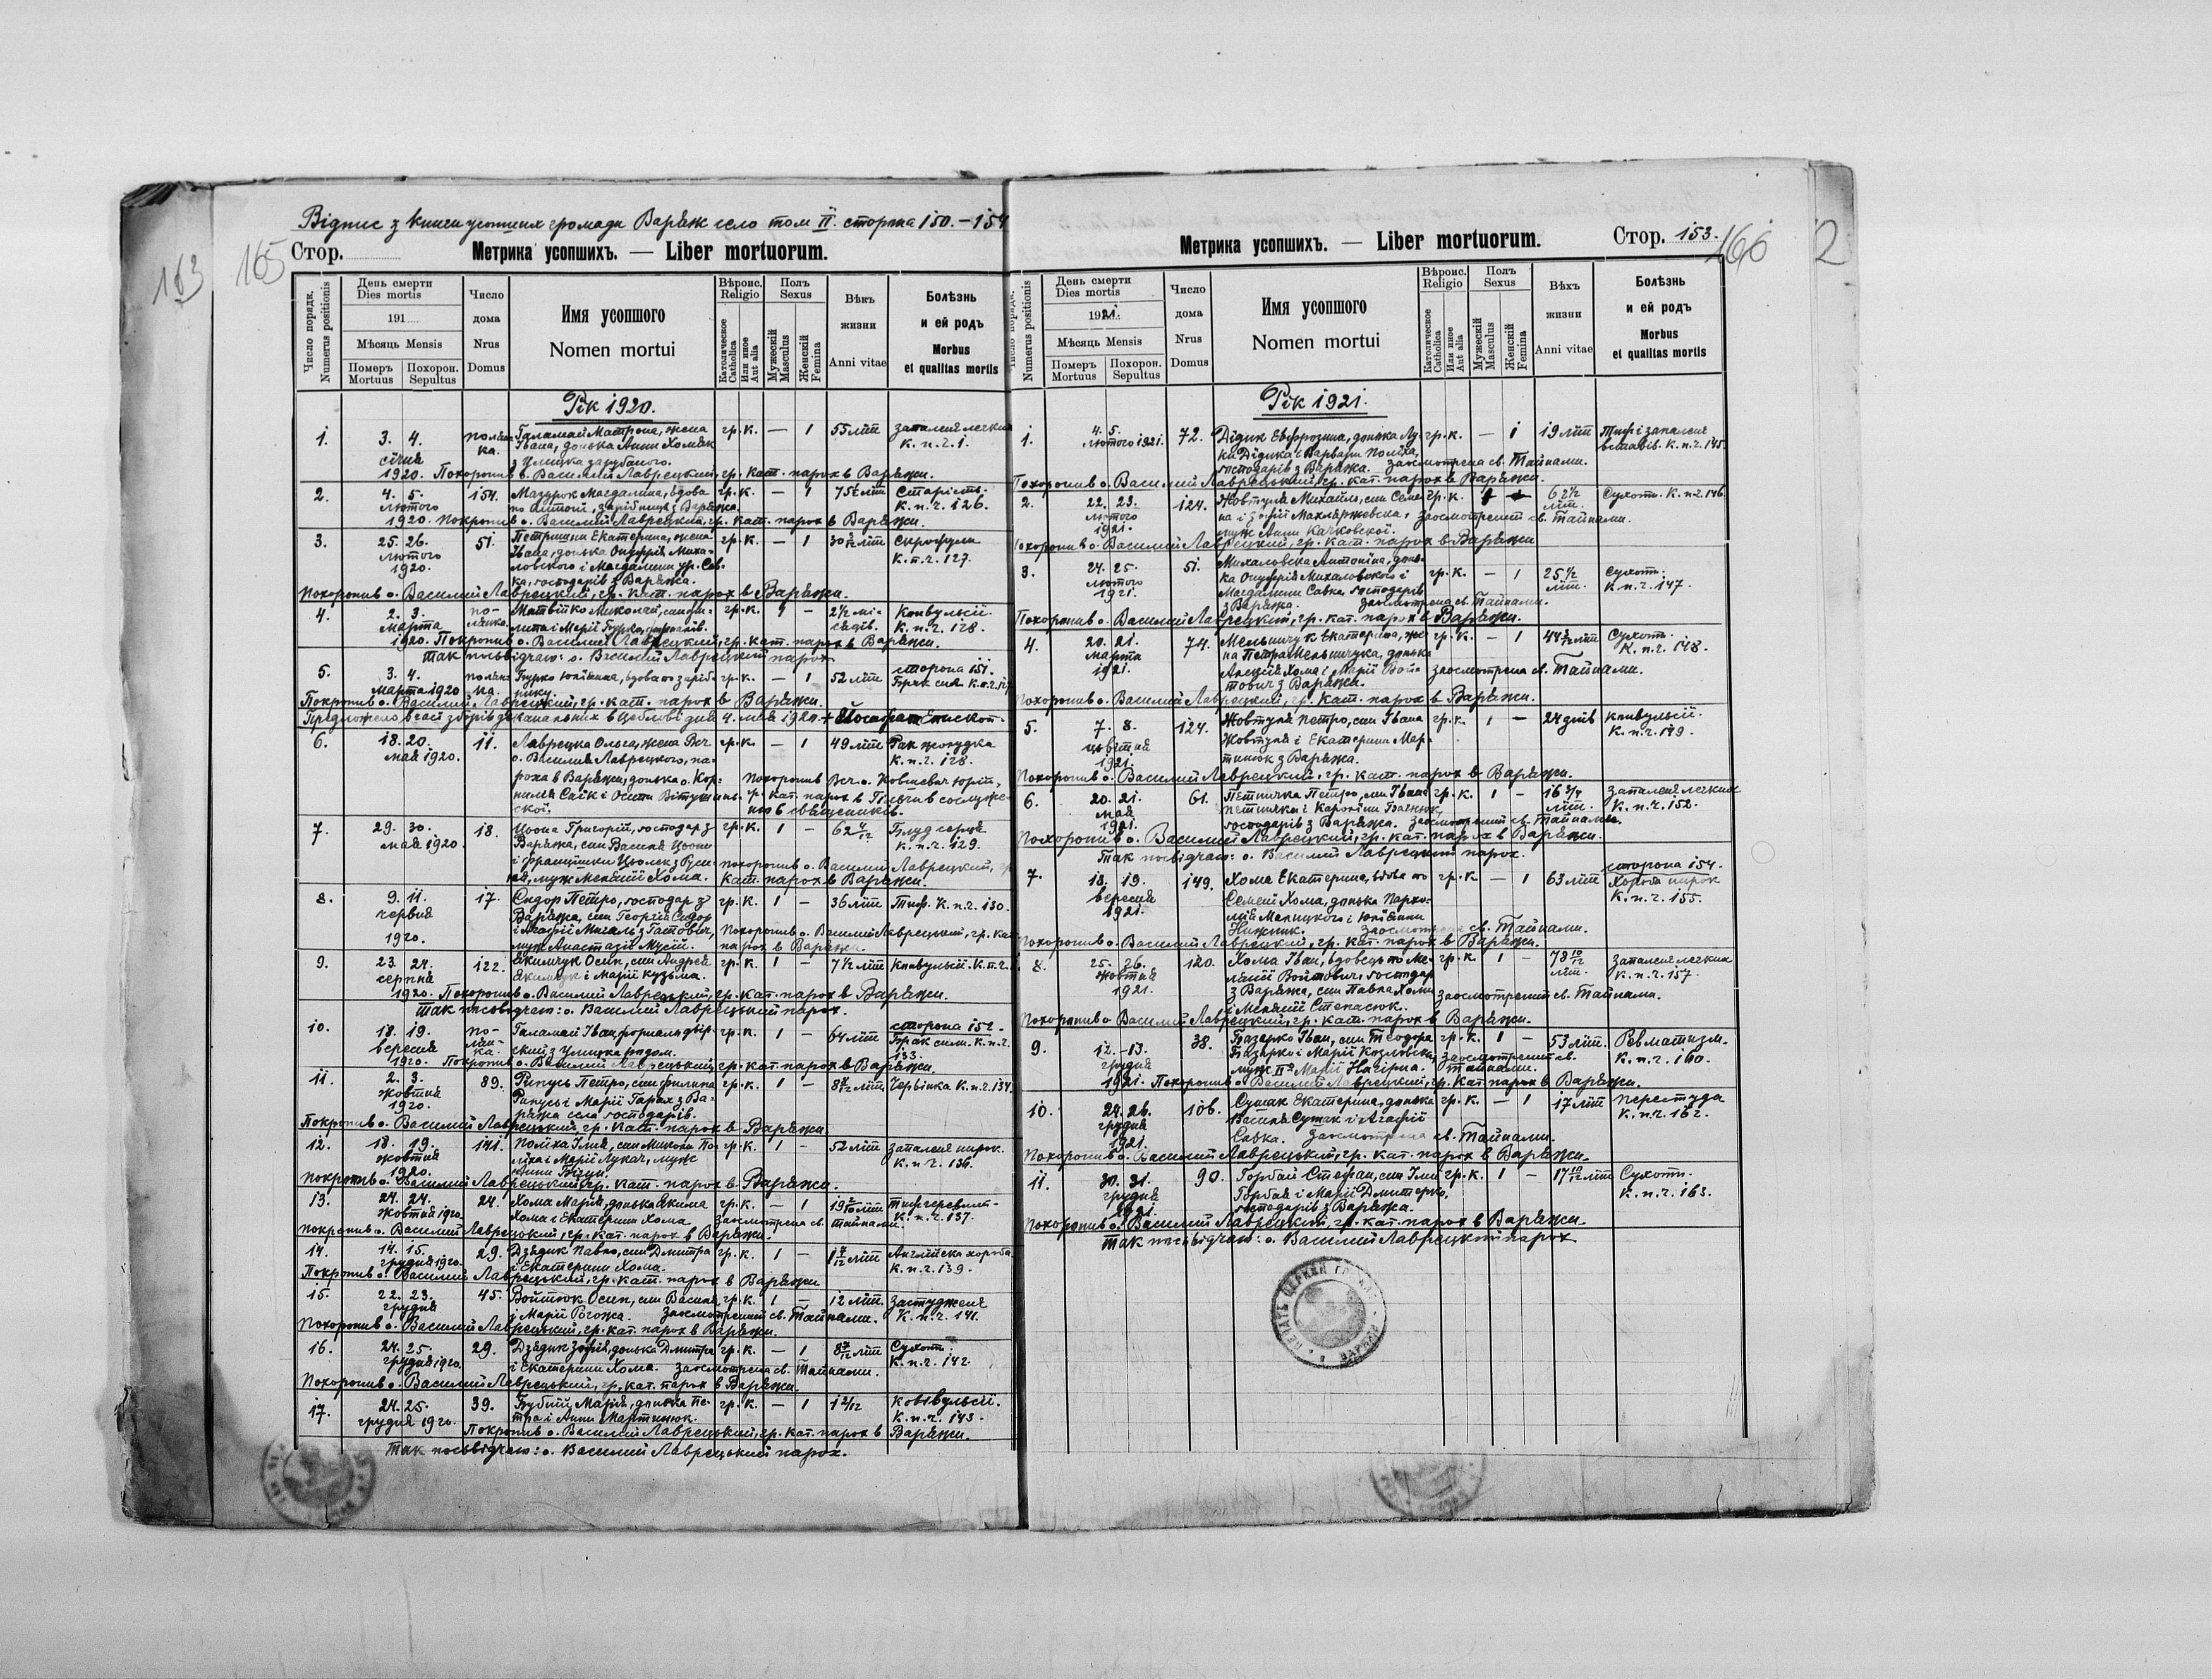 Відпис з книги усопших громади Варяж село том II. сторона 150.–154
163
165
Стор.
Метрика усопшихъ. — Liber mortuorum.
Число порядк.
Numerus positionis
День смерти
Dies mortis
191
Мѣсяць Mensis
Померъ
Mortuus
Похорон.
Sepultus
Число
дома
Nrus
Domus
Имя усопшого
Nomen mortui
Вѣроис.
Religio
Католическое
Catholica
Или иное
Aut alia
Полъ
Sexus
Мужескій
Masculus
Женскій
Femina
Вѣкъ
жизни
Anni vitae
Болѣзнь
и ей родъ
Morbus
et qualitas mortis
Рік 1920.
1. 3. 4. поля- Галамай Матрона, жена гр. к. — 1 55 літ запаленя легких
січня ка. Івана, донька Анни Хомяк К. п. ч. 1.
з Улицка зарубаного.
1920. Похоронив о. Василий Лаврецкий, гр. кат. парох в Варяжи.
2. 4. 5. 154. Мазурок Магдалина, вдова гр. к. — 1 75½ літ Старість.
лютого по Антоні, зарібниця з Варяжа. К. п. ч. 126.
1920. Похоронив о. Василий Лаврецкий, гр. кат. парох в Варяжи.
3. 25. 26. 51. Петришин Екатерина, жена гр. к. — 1 Скрофули
лютого Івана, донька Онуфрія Миха- К. п. ч. 127.
1920. ловского і Магдалини ур. Сав-
ка, господарів з Варяжа.
Похоронив о. Василий Лаврецкий, гр. кат. парох в Варяжи.
4. 2. 3. по- Матвійко Миколай, син гр. к. 1 — 2½ мі- Конвульсії.
марта лянка. і Марії Бурко, сяців. К. п. ч. 128.
1920. Похоронив о. Василий Лаврецкий, гр. кат. парох в Варяжи.
Так посвідчаю: о. Василий Лаврецкий парох
сторона 151.
5. 3. 4. поляна Бурко Юліянна, вдова по заріб- гр. к. — 1 52 літ Брак сил К. п. ч. 127
марта 1920 ка. нику.
Похоронив о. Василий Лаврецкий, гр. кат. парох в Варяжи.
Предложено в часі зборів деканальних в Цеблові дня 4. мая 1920. + Йосафат Епископ.
6. 18. 20. 11. Лаврецка Ольга, жена Всч. гр. к. — 1 49 літ Рак жолудка
мая 1920. о. Василия Лаврецкого, па- К. п. ч. 128.
роха в Варяжи, донька о. Кор- Похоронив Всч. о. Ковшевич Юрій,
нила Саїк і Осипи Вітушинь- гр. кат. парох в
ської. 6 священиків.
7. 29. 30. 18. Цюпа Григорій, господар з гр. к. 1 — 62 4/12 Блуд серця
мая 1920. Варяжа, син Василя Цюпи К. п. ч. 129.
і Францишки Цьолек з Руси- Похоронив о. Василий Лаврецкий, гр.
на, муж Меланії Хома. кат. парох в Варяжи.
8. 9. 11. 17. Сидор Петро, господар з гр. к. 1 — 36 літ Тиф. К. п. ч. 130.
червня Варяжа, син Георгія Сидор
1920. і Агафії Мигаль з Гастович, Похоронив о. Василий Лаврецький, гр. кат
муж Анастазії Мусій. парох в Варяжа.
9. 23. 24. 122. Якимчук Осип, син Андрея гр. к. 1 — 7½ літ Конвульсії. К. п. ч.
серпня Якимчук і Марії Кузьма.
1920. Похоронив о. Василий Лаврецький, гр. кат. парох в Варяжи.
Так посвідчаю: о. Василий Лаврецький парох.
сторона 152.
10. 18. 19. по- Галамай Іван, форналь двір- гр. к. 1 — 64 літ Брак сил. К. п. ч.
вересня лян- ский з Улицка родом. 133.
1920. ка. Похоронив о. Василий Лаврецький, гр. кат. парох в Варяжи.
11. 2. 3. 89. Рипусь Петро, син Филипа гр. к. 1 — Червінка К. п. ч. 134.
жовтня Рипусь і Марії Гарах з Ва-
1920. ряжа села господарів.
Похоронив о. Василий Лаврецький, гр. кат. парох в Варяжи.
12. 18. 19. 141. Поліха Ілия, син Миколи По- гр. к. 1 — 52 літ Запаленя нирок.
жовтня ліха і Марії Лукач, муж К. п. ч. 136.
1920. Анни
Похоронив о. Василий Лаврецький, гр. кат. парох в Варяжи.
13. 24. 24. 24. Хома Марія, донька Якима гр. к. — 1 Тиф черевний.
жовтня 1920. Хома і Екатерини Хома. Заосмотрена св. Тайнами. К. п. ч. 137.
Похоронив о. Василий Лаврецький, гр. кат. парох в Варяжи.
14. 14. 15. 29. Дзядик Павло, син Дмитра гр. к. 1 — Англійска хороба.
грудня 1920. і Екатерини Хома. К. п. ч. 139.
Похоронив о. Василий Лаврецький, гр. кат. парох в Варяжи
15. 22. 23. 45. Войтюк Осип, син Василя гр. к. 1 — 12 літ. Застудженя
грудня і Марії Рогожа. Заосмотрений св. Тайнами. К. п. ч. 141.
Похоронив о. Василий Лаврецький, гр. кат. парох в Варяжи.
16. 24. 25. 29. Дзядик Зофія, донька Дмитра гр. к. — 1 Сухоти.
грудня 1920. і Екатерини Хома. Заосмотрена св. Тайнами. К. п. ч. 142.
Похоронив о. Василий Лаврецький, гр. кат. парох в Варяжи.
17. 24. 25. 39. Бубній Марія, донька Пе- гр. к. — 1 1 2/12 Конвульсії.
грудня 1920. тра і Анни Мартинюк. К. п. ч. 143.
Похоронив о. Василий Лаврецький, гр. кат. парох в Варяжи.
Так посвідчаю: о. Василий Лаврецький парох.
Метрика усопшихъ. — Liber mortuorum.
Стор. 153.
166
2
Число порядк.
Numerus positionis
День смерти
Dies mortis
1921.
Мѣсяць Mensis
Померъ
Mortuus
Похорон.
Sepultus
Число
дома
Nrus
Domus
Имя усопшого
Nomen mortui
Вѣроис.
Religio
Католическое
Catholica
Или иное
Aut alia
Полъ
Sexus
Мужескій
Masculus
Женскій
Femina
Вѣкъ
жизни
Anni vitae
Болѣзнь
и ей родъ
Morbus
et qualitas mortis
Рік 1921.
1. 4. 5. 72. Дідик Евфрозина, донька Лу- гр. к. — 1 19 літ Тиф і запаленя
лютого 1921. ки Дідика і Варвари Поліха, К. п. ч. 145.
господарів з Варяжа. Заосмотрена св. Тайнами.
Похоронив о. Василий Лаврецький, гр. кат. парох в Варяжи.
2. 22. 23. 124. Жовтуля Михайло, син Семе- гр. к. 1 — 62½ Сухоти. К. п. ч. 146.
лютого на і Зофії Махляржевска, Заосмотрений св. Тайнами. літ.
1921. муж Анни Качковської.
Похоронив о. Василий Лаврецький, гр. кат. парох в Варяжи
3. 24. 25. 51. Михаловска Антоніна, донь- гр. к. — 1 25½ Сухоти.
лютого ка Онуфрія Михаловского і літ. К. п. ч. 147.
1921. Магдалини Савка, господарів
з Варяжа. Заосмотрена св. Тайнами.
Похоронив о. Василий Лаврецкий, гр. кат. парох в Варяжи.
4. 20. 21. 74. Мельничук Екатерина, же- гр. к. — 1 Сухоти.
марта на Петра Мельничука, донька К. п. ч. 148.
1921. Алексія Хома і Марії Вой- Заосмотрена св. Тайнами.
тович з Варяжа.
Похоронив о. Василий Лаврецкий, гр. кат. парох в Варяжи.
5. 7. 8. 124. Жовтуля Петро, син Івана гр. к. 1 — 24 днів Конвульсії.
цьвітня Жовтуля і Екатерини Мар- К. п. ч. 149.
1921. тинюк з Варяжа.
Похоронив о. Василий Лаврецкий, гр. кат. парох в Варяжи.
6. 20. 21. 61. Петничка Петро, син Івана гр. к. 1 — Запаленя легких
мая Петнички і Кароліни літ. К. п. ч. 152.
1921. господарів з Варяжа. Заосмотрений св. Тайнами.
Похоронив о. Василий Лаврецкий, гр. кат. парох в Варяжи.
Так посвідчаю: о. Василий Лаврецкий парох.
сторона 154.
7. 18. 19. 149. Хома Екатерина, вдова по гр. к. — 1 63 літ Хороба нирок
вересня Семені Хома, донька Пархо- К. п. ч. 155.
1921. мія Малицкого і Юліянни
Нижник. Заосмотрена св. Тайнами.
Похоронив о. Василий Лаврецкий, гр. кат. парох в Варяжи.
8. 25. 26. 120. Хома Іван, вдовець по Ме- гр. к. 1 — 78 10/12 Запаленя легких
жовтня ланії Войтович, господар літ. К. п. ч. 157.
1921. з Варяжа, син Павла Хоми Заосмотрений св. Тайнами.
і Меланії Степасюк.
Похоронив о. Василий Лаврецкий, гр. кат. парох в Варяжи.
9. 12. 13. 38. Базарко Іван, син Теодора гр. к. 1 — 53 літ. Ревматизм.
грудня Базарко і Марії Козловска, Заосмотрений св. К. п. ч. 160.
муж II° Марії Нагірна. Тайнами.
1921. Похоронив о. Василий Лаврецкий, гр. кат. парох в Варяжи.
10. 24. 26. 106. Сушак Екатерина, донька гр. к. — 1 17 літ Перестуда
грудня Василя Сушак і Агафії К. п. ч. 162.
1921. Савка. Заосмотрена св. Тайнами.
Похоронив о. Василий Лаврецький, гр. кат. парох в Варяжи.
11. 30. 31. 90. Горбай Стефан, син Ілии гр. к. 1 — 17 10/12 літ Сухоти.
грудня Горбая і Марії Дмитерко, К. п. ч. 163.
1921. господарів з Варяжа.
Похоронив о. Василий Лаврецкий, гр. кат. парох в Варяжи.
Так посвідчаю: о. Василий Лаврецкий парох